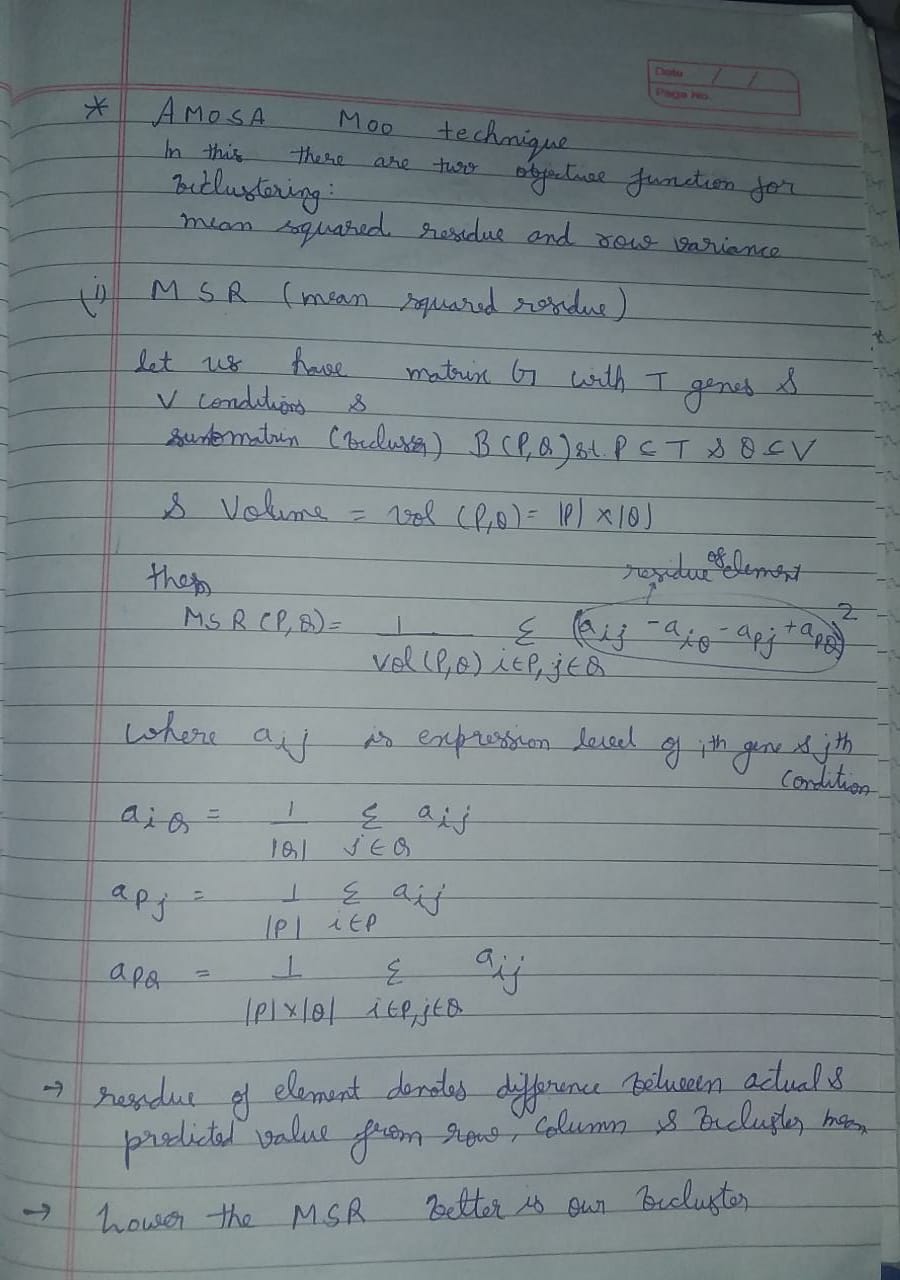 Date / /
Page No.
* AMOSA MOO technique
In this there are two objective function for
biclustering:
mean squared residue and row variance
(i) MSR (mean squared residue)
let us have matrix G with T genes &
V conditions &
submatrix (bicluster) B(P,Q) st. P ⊂ T & Q ⊂ V
& Volume = vol (P,Q) = |P| × |Q|
residue of element
then
MSR(P,Q) = 1/Vol(P,Q) Σ i∈P, j∈Q (aij - aiQ - aPj + aPQ)²
where aij is expression level of ith gene & jth
condition
aiQ = 1/|Q| Σ j∈Q aij
aPj = 1/|P| Σ i∈P aij
aPQ = 1/|P|×|Q| Σ i∈P, j∈Q aij
→ residue of element denotes difference between actual &
predicted value from row, column & bicluster mean
→ Lower the MSR better is our bicluster